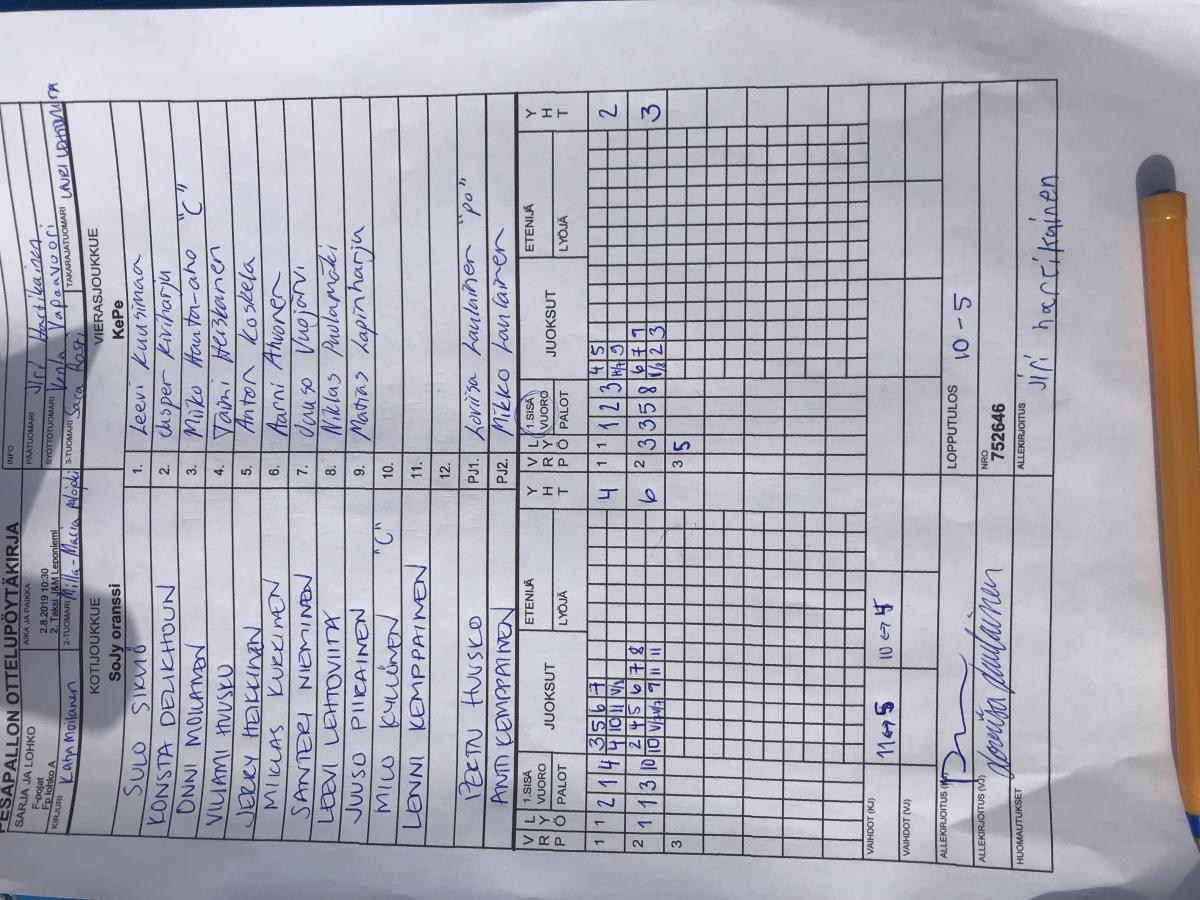 PESÄPALLON OTTELUPÖYTÄKIRJA
SARJA JA LOHKO
F-pojat
Fp lohko A
AIKA JA PAIKKA
2.8.2019 10:30
2. Taksi J&M Leponiemi
INFO
PÄÄTUOMARI Jiri Hartikainen
SYÖTTÖTUOMARI Vapaavuori
KIRJURI Katja Moilanen
2-TUOMARI Milla-Maria
3-TUOMARI Sara
TAKARAJATUOMARI LAURI
KOTIJOUKKUE
SoJy oranssi
VIERASJOUKKUE
KePe
SULO SIKVIÖ 1. Leevi Kuusimaa
KONSTA DELIKHOUN 2. Jesper Kiviharju
ONNI MOILANEN 3. Miiko Hauta-aho "C"
VILJAMI HUUSKO 4. Taimi Heiskanen
JERRY HEIKKINEN 5. Anton Koskela
MIIKAS KUKKINEN 6. Aarni Ahonen
SANTERI NIEMINEN 7. Juuso Vuojärvi
LEEVI LEHTOVIITA 8. Niklas Puolamäki
JUUSO PIIKAINEN 9. Matias Lapinharju
MILO KYLLÖNEN "C" 10.
LENNI KEMPPAINEN 11.
12.
PERTU HUUSKO PJ1. Loviisa Laulainen "PO"
ANTTI KEMPPAINEN PJ2. Mikko Laulainen
V R P L Y Ö 1.SISÄ VUORO PALOT JUOKSUT ETENIJÄ LYÖJÄ Y H T V R P L Y Ö 1.SISÄ VUORO PALOT JUOKSUT ETENIJÄ LYÖJÄ Y H T
1 1 2 1 4 3 5 6 7 4 1 1 1 2 3 4 5 2
4 10 11 1/2 9
2 1 1 3 10 2 4 5 6 7 8 6 2 3 3 5 8 6 7 9 3
10 1/2 1/2 9 11 11 1/2 2 3
3 3 5
VAIHDOT (KJ) 11↔5 10↔7
VAIHDOT (VJ)
ALLEKIRJOITUS (KJ)
LOPPUTULOS 10-5
ALLEKIRJOITUS (VJ) Loviisa Laulainen
NRO
752646
HUOMAUTUKSET
ALLEKIRJOITUS Jiri hartikainen